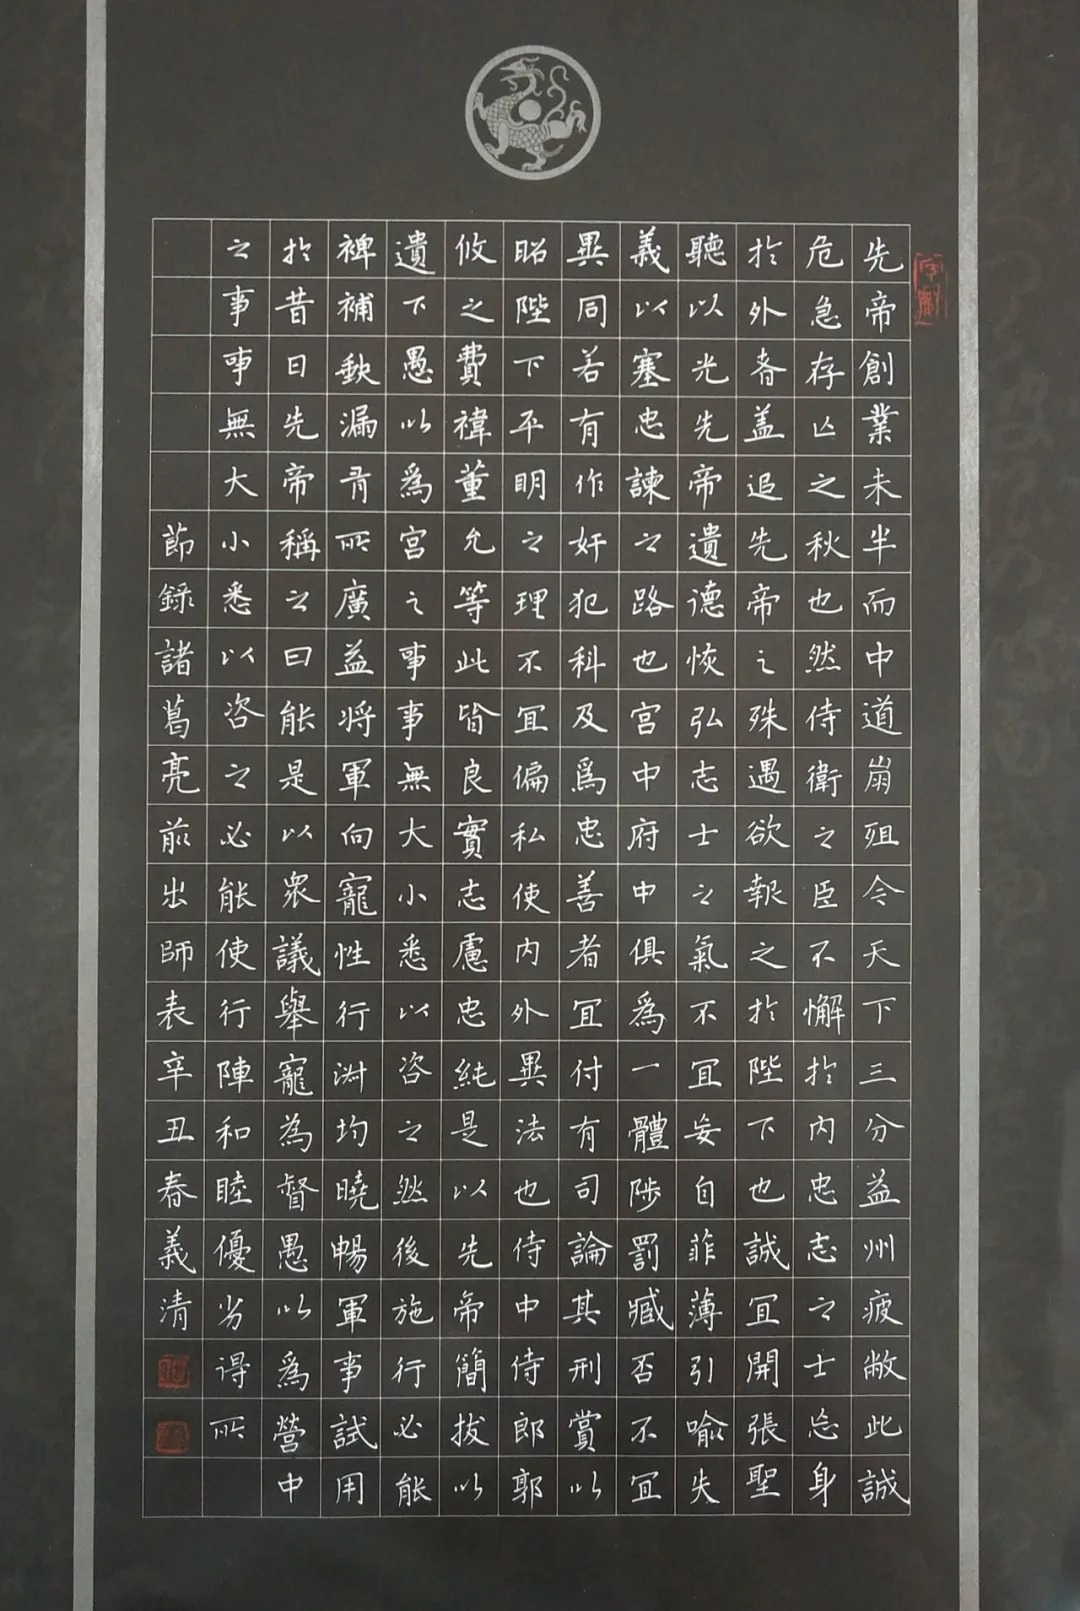 先帝創業未半而中道崩殂今天下三分益州疲敝此誠
危急存亾之秋也然侍衛之臣不懈於内忠志之士忘身
於外者盖追先帝之殊遇欲報之於陛下也誠宜開張聖
聽以光先帝遺德恢弘志士之氣不宜妄自菲薄引喻失
義以塞忠諫之路也宫中府中俱為一體陟罰臧否不宜
異同若有作奸犯科及為忠善者宜付有司論其刑賞以
昭陛下平明之理不宜偏私使内外異法也侍中侍郎郭
攸之費禕董允等此皆良實志慮忠純是以先帝簡拔以
遺下愚以為宫之事事無大小悉以咨之然後施行必能
裨補缺漏有所廣益将軍向寵性行淑均曉暢軍事試用
於昔日先帝稱之曰能是以衆議舉寵為督愚以為營中
之事事無大小悉以咨之必能使行陣和睦優劣得所
節錄諸葛亮前出師表辛丑春義清